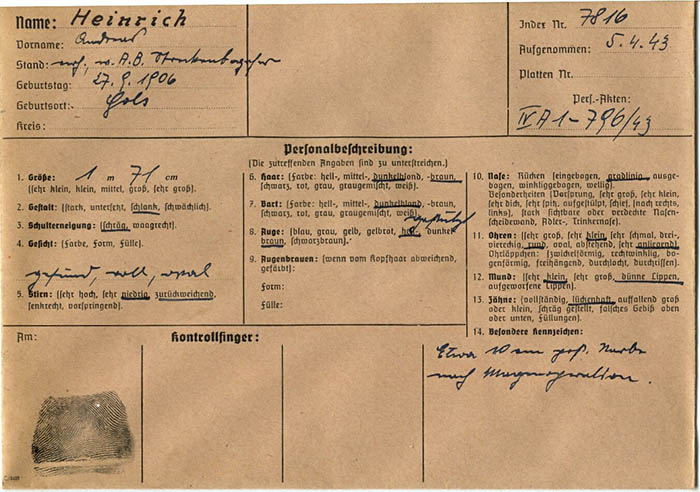 Name: Heinrich
Vorname: Andreas
Stand:
Geburtstag: 27.9.1906
Geburtsort: Gols
Kreis:
Index Nr. 7816
Aufgenommen: 5.4.43
Platten Nr.
Pers.-Akten:
IV A 1-796/43
Personalbeschreibung:
(Die zutreffenden Angaben sind zu unterstreichen.)
1. Größe: 1 m 71 cm
(sehr klein, klein, mittel, groß, sehr groß).
2. Gestalt: (stark, untersetzt, schlank, schwächlich).
3. Schulterneigung: (schräg, waagrecht).
4. Gesicht: (Farbe, Form, Fülle).
gesund, voll, oval
5. Stirn: (sehr hoch, sehr niedrig, zurückweichend,
senkrecht, vorspringend).
6. Haar: (Farbe: hell-, mittel-, dunkelblond, -braun,
schwarz, rot, grau, graugemischt, weiß).
7. Bart: (Farbe: hell-, mittel-, dunkelblond, -braun,
schwarz, rot, grau, graugemischt, weiß).
8. Auge: (blau, grau, gelb, gelbrot, hell, dunkel-
braun, schwarzbraun).
9. Augenbrauen: (wenn vom Kopfhaar abweichend,
gefärbt):
Form:
Fülle:
10. Nase: Rücken (eingebogen, gradlinig, ausge-
bogen, winkliggebogen, wellig).
Besonderheiten (Vorsprung, sehr groß, sehr klein,
sehr dick, sehr spitz, aufgestülpt, schief, [nach rechts,
links], stark sichtbare oder verdeckte Nasen-
scheidewand, Adler-, Trinkernase).
11. Ohren: (sehr groß, sehr klein, sehr schmal, drei-,
viereckig, rund, oval, abstehend, sehr anliegend)
Ohrläppchen: (zwickelförmig, rechtwinklig, bo-
genförmig, freihängend, durchlocht, durchrissen).
12. Mund: (sehr klein, sehr groß, dünne Lippen,
aufgeworfene Lippen).
13. Zähne: (vollständig, lückenhaft, auffallend groß
oder klein, schräg gestellt, falsches Gebiß oben
oder unten, Füllungen).
14. Besondere Kennzeichen:
Etwa 10 cm groß. Narbe
nach Magenoperation.
Am:
Kontrollfinger: